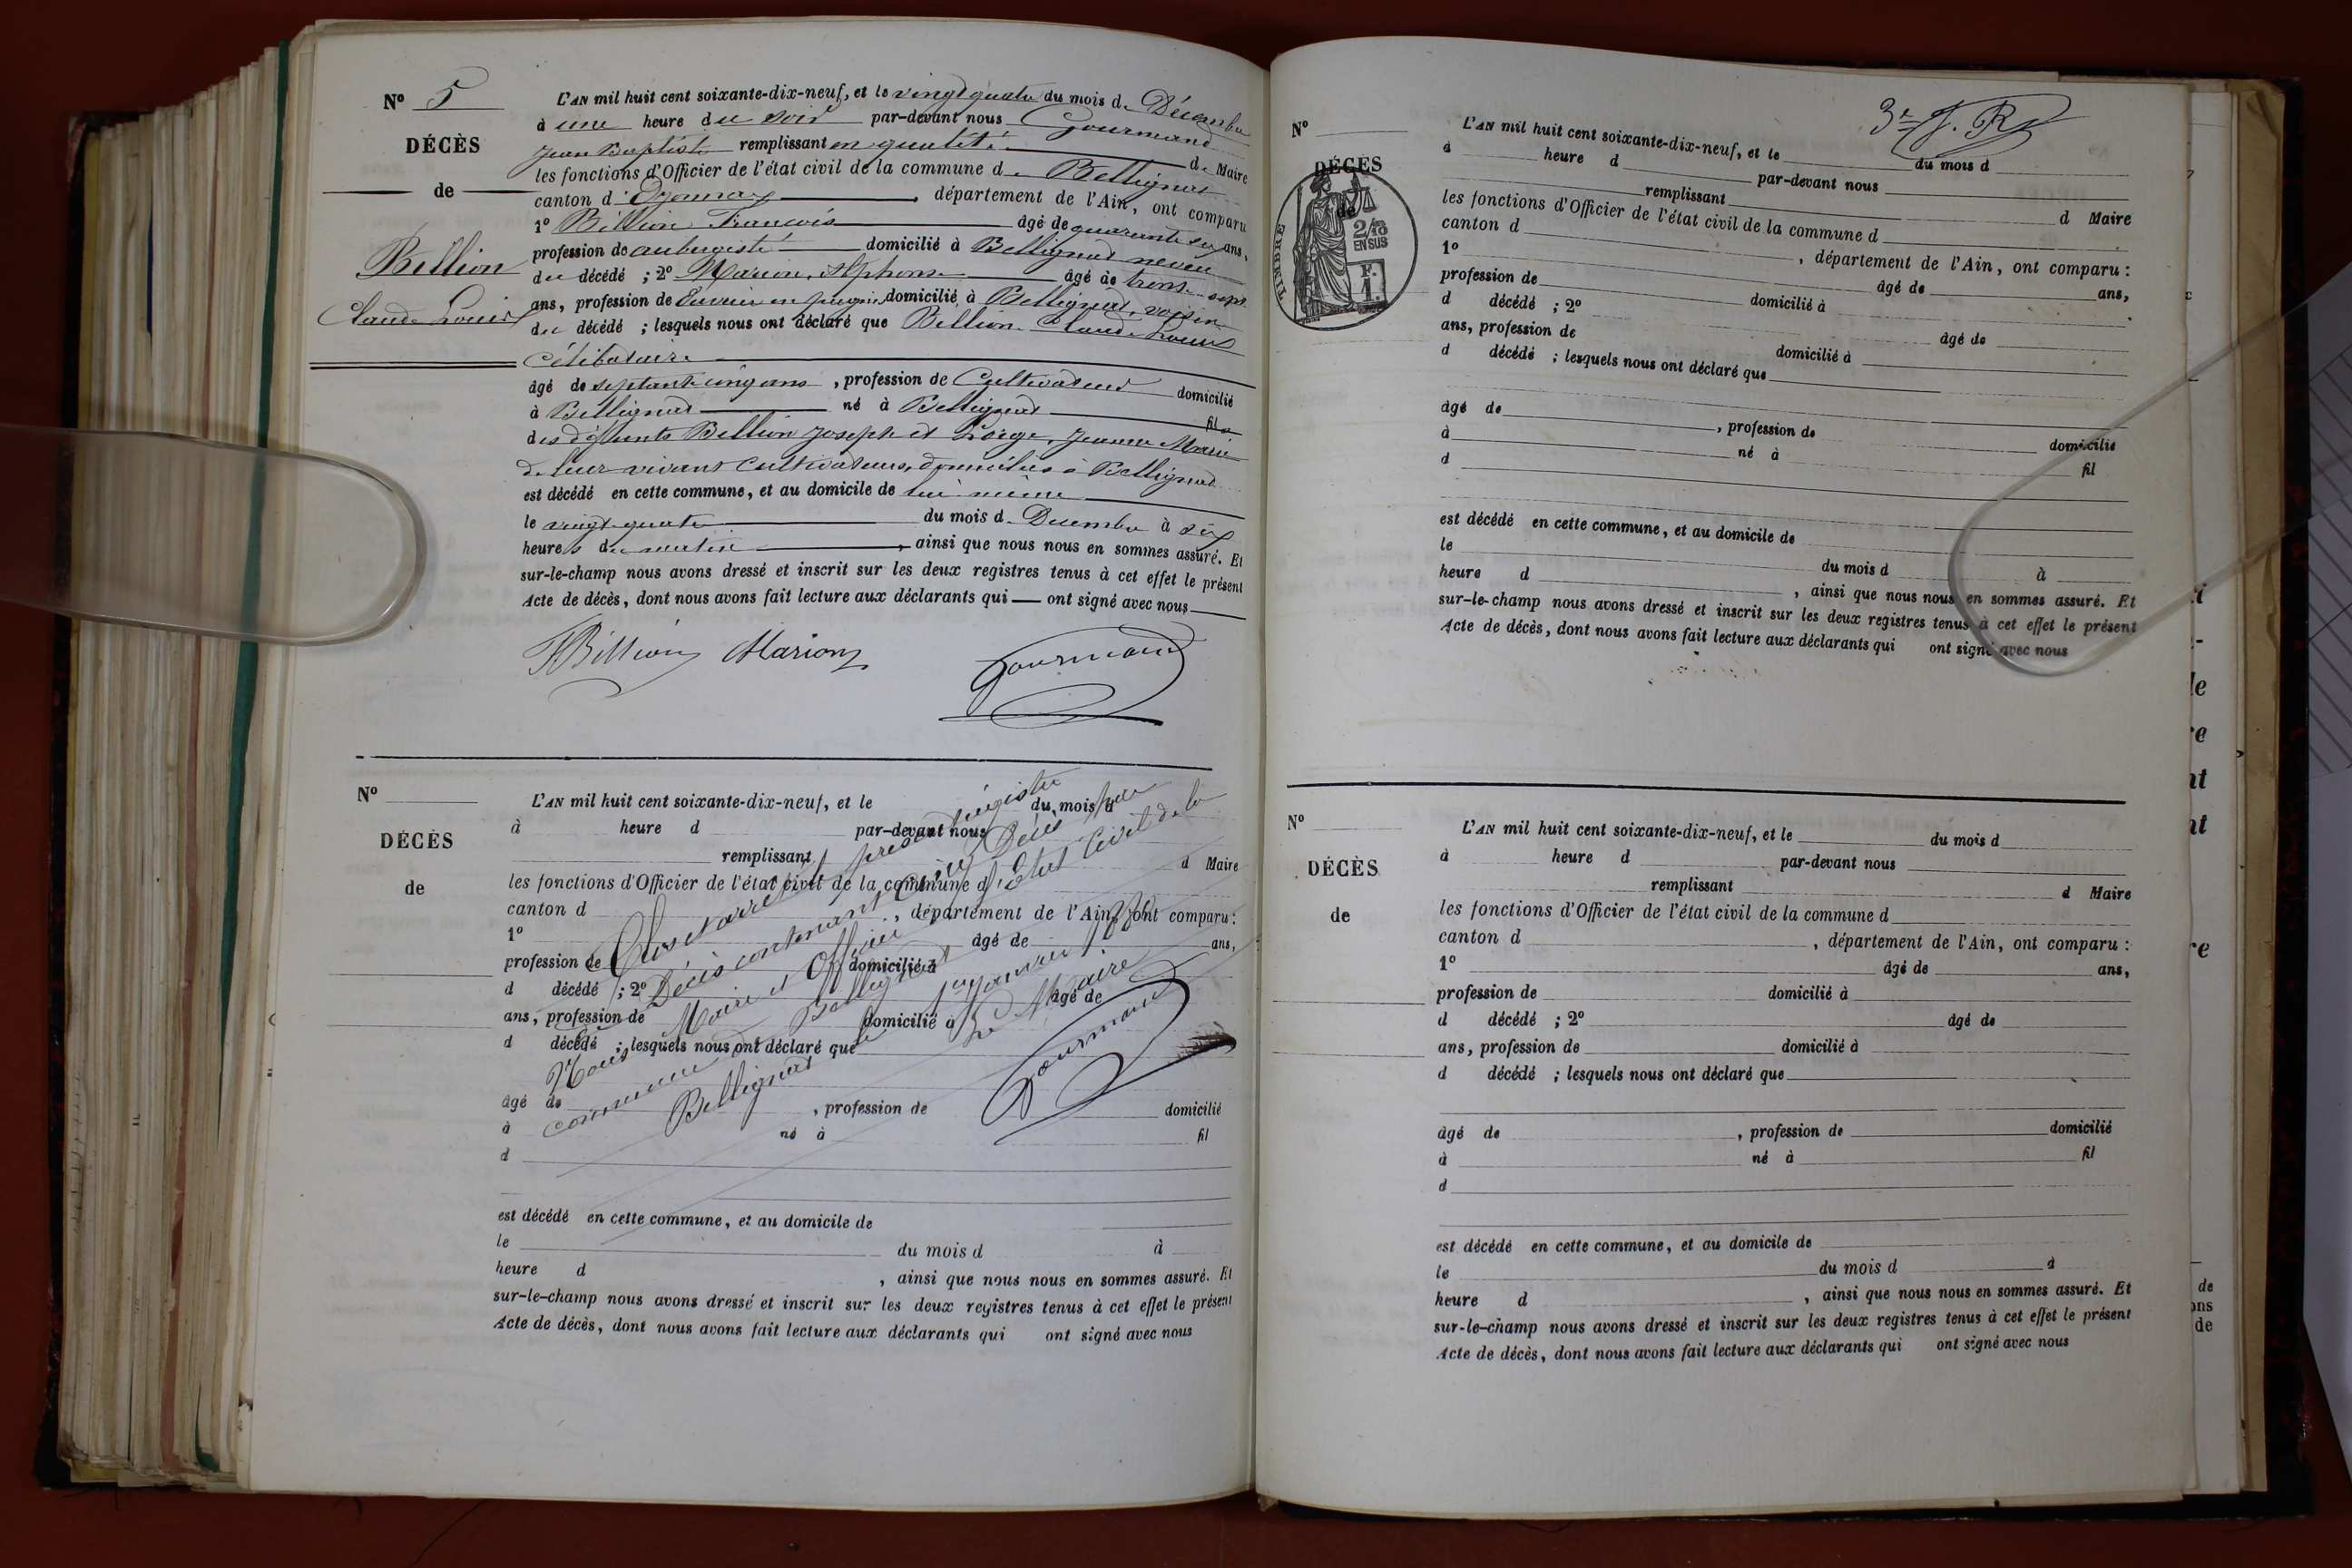 N° 5
DÉCÈS
de
Billion
Claude Louis
L'AN mil huit cent soixante-dix-neuf, et le vingt quatre du mois de Décembre
à une heure du soir par-devant nous Gourmand
Jean Baptiste remplissant en qualité de Maire
les fonctions d'Officier de l'état civil de la commune de Bellignat
canton d'Oyonnax, département de l'Ain, ont comparu
1° Billion François âgé de quarante six ans,
profession de aubergiste domicilié à Bellignat neveu
du décédé ; 2° Marion, Alphonse âgé de trente sept
ans, profession de Euvrier en peignes domicilié à Bellignat, voisin
du décédé ; lesquels nous ont déclaré que Billion Claude Louis
Célibataire
âgé de septante cinq ans, profession de Cultivateur domicilié
à Bellignat né à Bellignat fils
des défunts Billion Joseph et Jeanne Marie
de leur vivant cultivateurs, domiciliés à Bellignat
est décédé en cette commune, et au domicile de lui même
le vingt quatre du mois de Décembre à six
heures du matin, ainsi que nous nous en sommes assuré. Et
sur-le-champ nous avons dressé et inscrit sur les deux registres tenus à cet effet le présent
Acte de décès, dont nous avons fait lecture aux déclarants qui — ont signé avec nous
F Billion Marion Gourmand
N°
DÉCÈS
de
L'AN mil huit cent soixante-dix-neuf, et le du mois d
à heure d par-devant nous
remplissant d Maire
les fonctions d'Officier de l'état civil de la commune d
canton d , département de l'Ain, ont comparu :
1° âgé de ans,
profession de domicilié à
d décédé ; 2° âgé de
ans, profession de domicilié à
d décédé ; lesquels nous ont déclaré que
âgé de , profession de domicilié
à né à fil
d
est décédé en cette commune, et au domicile de
le du mois d à
heure d , ainsi que nous nous en sommes assuré. Et
sur-le-champ nous avons dressé et inscrit sur les deux registres tenus à cet effet le présent
Acte de décès, dont nous avons fait lecture aux déclarants qui ont signé avec nous
Clos et arrêté le présent régistre
Décès contenant cinq Décès par
Nous Maire et Officier de l'Etat Civil de la
commune de Bellignat
Bellignat le 1er Janvier
Le Maire
Gourmand
3e f. R
N°
DÉCÈS
de
TIMBRE
2/10
EN SUS
F.
1.
L'AN mil huit cent soixante-dix-neuf, et le du mois d
à heure d par-devant nous
remplissant d Maire
les fonctions d'Officier de l'état civil de la commune d
canton d , département de l'Ain, ont comparu :
1° âgé de ans,
profession de domicilié à
d décédé ; 2° âgé de
ans, profession de domicilié à
d décédé ; lesquels nous ont déclaré que
âgé de , profession de domicilié
à né à fil
d
est décédé en cette commune, et au domicile de
le du mois d à
heure d , ainsi que nous nous en sommes assuré. Et
sur-le-champ nous avons dressé et inscrit sur les deux registres tenus à cet effet le présent
Acte de décès, dont nous avons fait lecture aux déclarants qui ont signé avec nous
N°
DÉCÈS
de
L'AN mil huit cent soixante-dix-neuf, et le du mois d
à heure d par-devant nous
remplissant d Maire
les fonctions d'Officier de l'état civil de la commune d
canton d , département de l'Ain, ont comparu :
1° âgé de ans,
profession de domicilié à
d décédé ; 2° âgé de
ans, profession de domicilié à
d décédé ; lesquels nous ont déclaré que
âgé de , profession de domicilié
à né à fil
d
est décédé en cette commune, et au domicile de
le du mois d à
heure d , ainsi que nous nous en sommes assuré. Et
sur-le-champ nous avons dressé et inscrit sur les deux registres tenus à cet effet le présent
Acte de décès, dont nous avons fait lecture aux déclarants qui ont signé avec nous